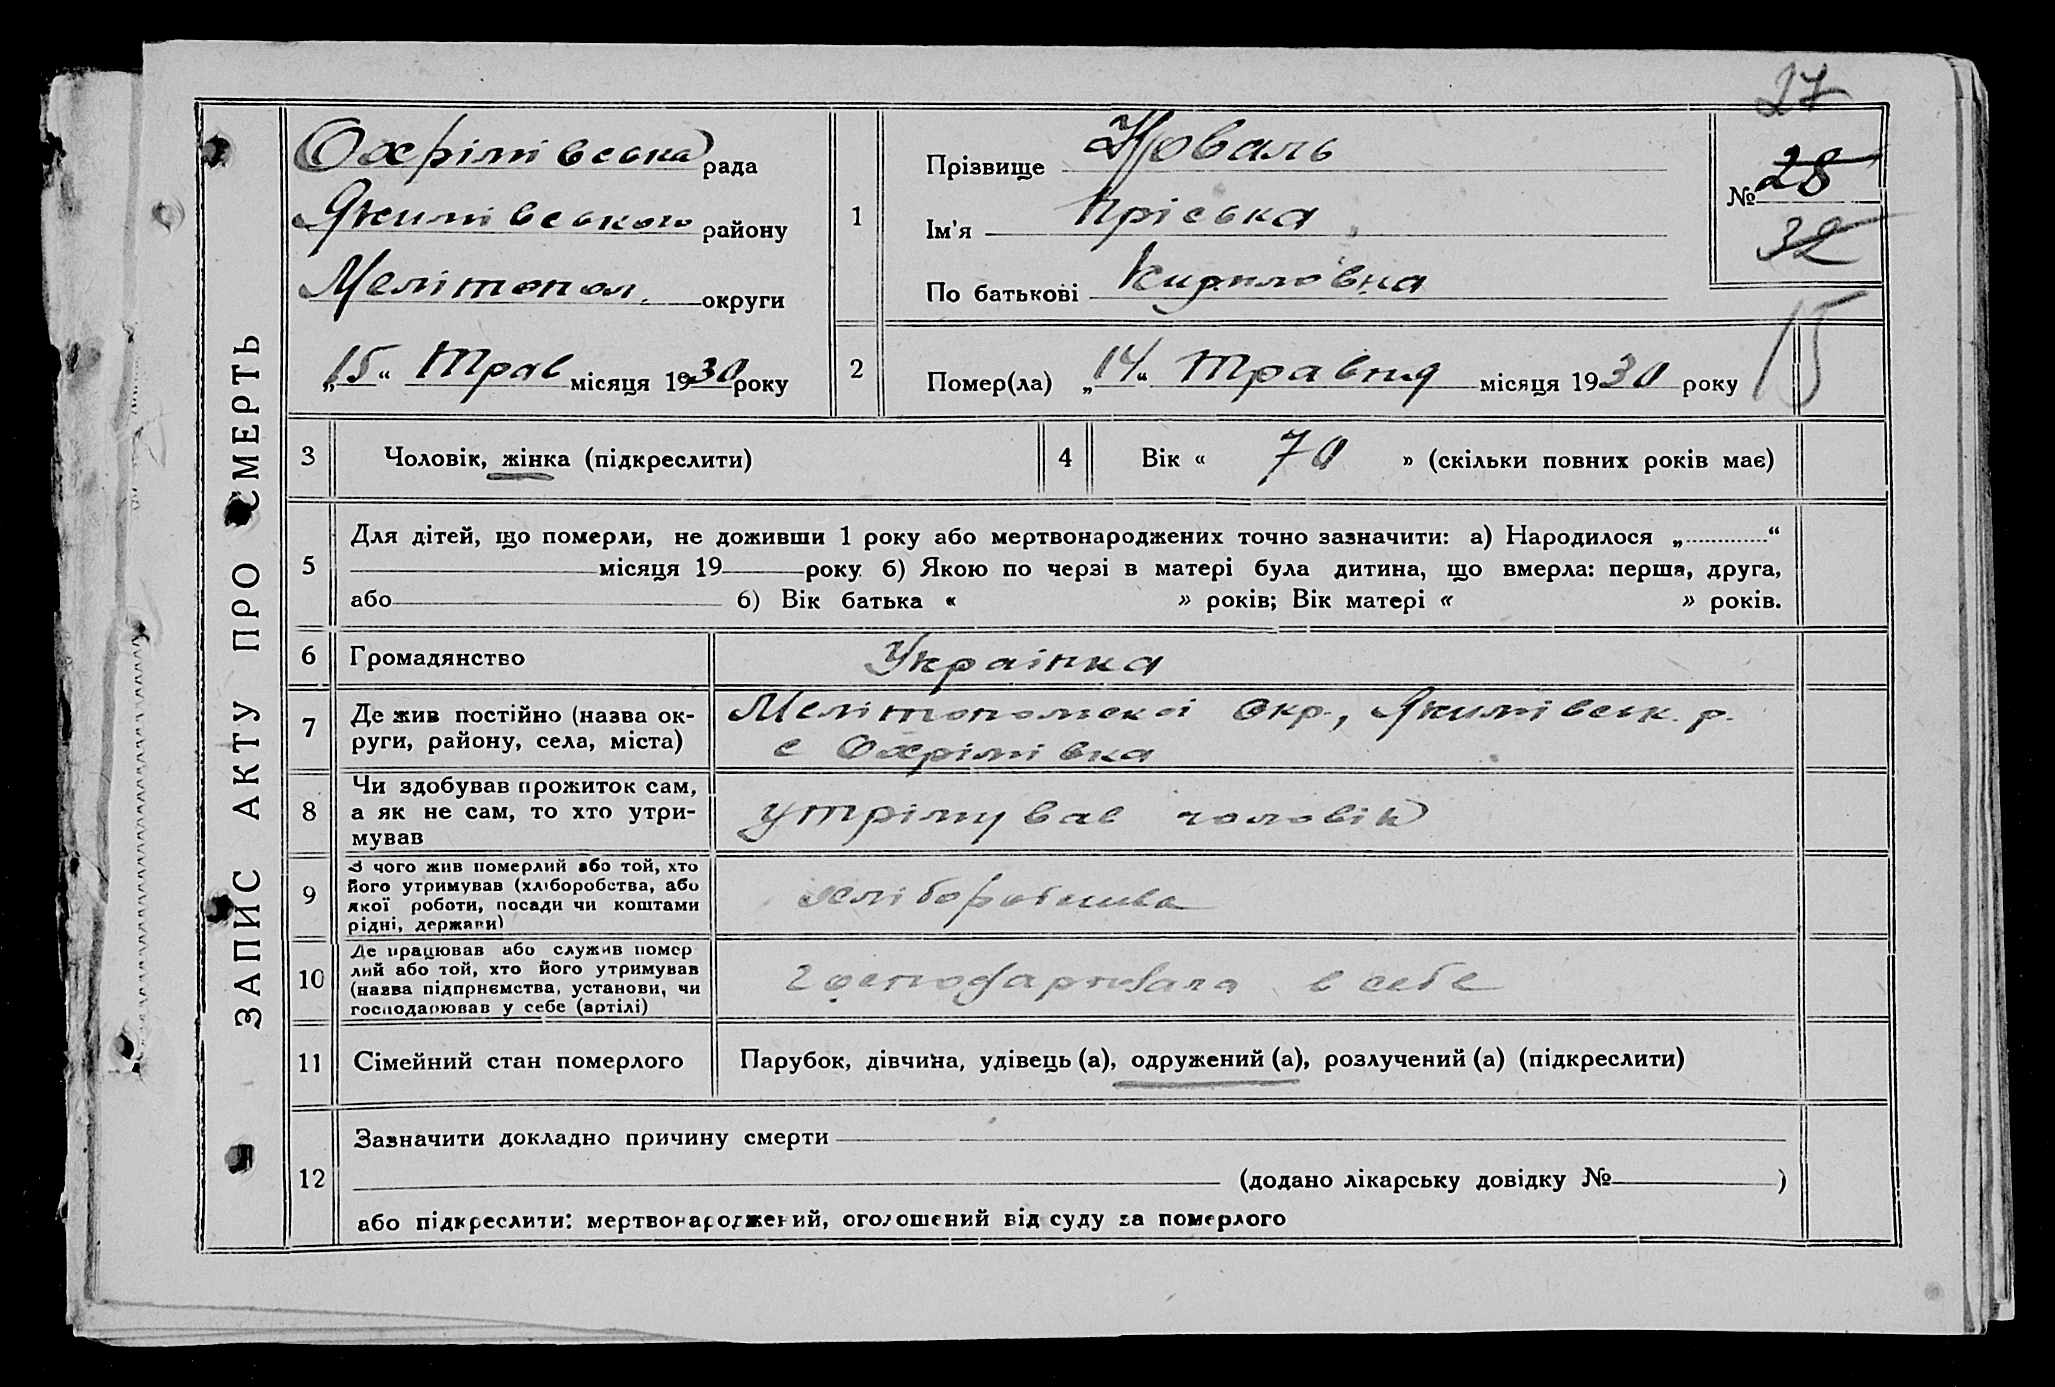 27
ЗАПИС АКТУ ПРО СМЕРТЬ
Охрімівська рада
Якимівського району
Мелітопол. округи
„15“ Трав місяця 1930 року
1
Прізвище Коваль
Ім'я Пріська
По батькові Кирилівна
№ 28
32
15
2
Помер(ла) „14“ Травня місяця 1930 року
3
Чоловік, жінка (підкреслити)
4
Вік « 70 » (скільки повних років має)
5
Для дітей, що померли, не доживши 1 року або мертвонароджених точно зазначити: а) Народилося „ “
місяця 19 року б) Якою по черзі в матері була дитина, що вмерла: перша, друга,
або б) Вік батька « » років; Вік матері « » років.
6
Громадянство
Украінка
7
Де жив постійно (назва ок-
руги, району, села, міста)
Мелітопольскоі Окр., Якимівськ. р.
с Охрімівка
8
Чи здобував прожиток сам,
а як не сам, то хто утри-
мував
утрімував чоловік
9
З чого жив померлий або той, хто
його утримував (хліборобства, або
якої роботи, посади чи коштами
рідні, держави)
хліборобства
10
Де працював або служив помер
лий або той, хто його утримував
(назва підпрнємства, установи, чи
господарював у себе (артілі)
господарювала в себе
11
Сімейний стан померлого
Парубок, дівчина, удівець (а), одружений (а), розлучений (а) (підкреслити)
12
Зазначити докладно причину смерти
(додано лікарську довідку № )
або підкреслити: мертвонароджений, оголошений від суду за померлого